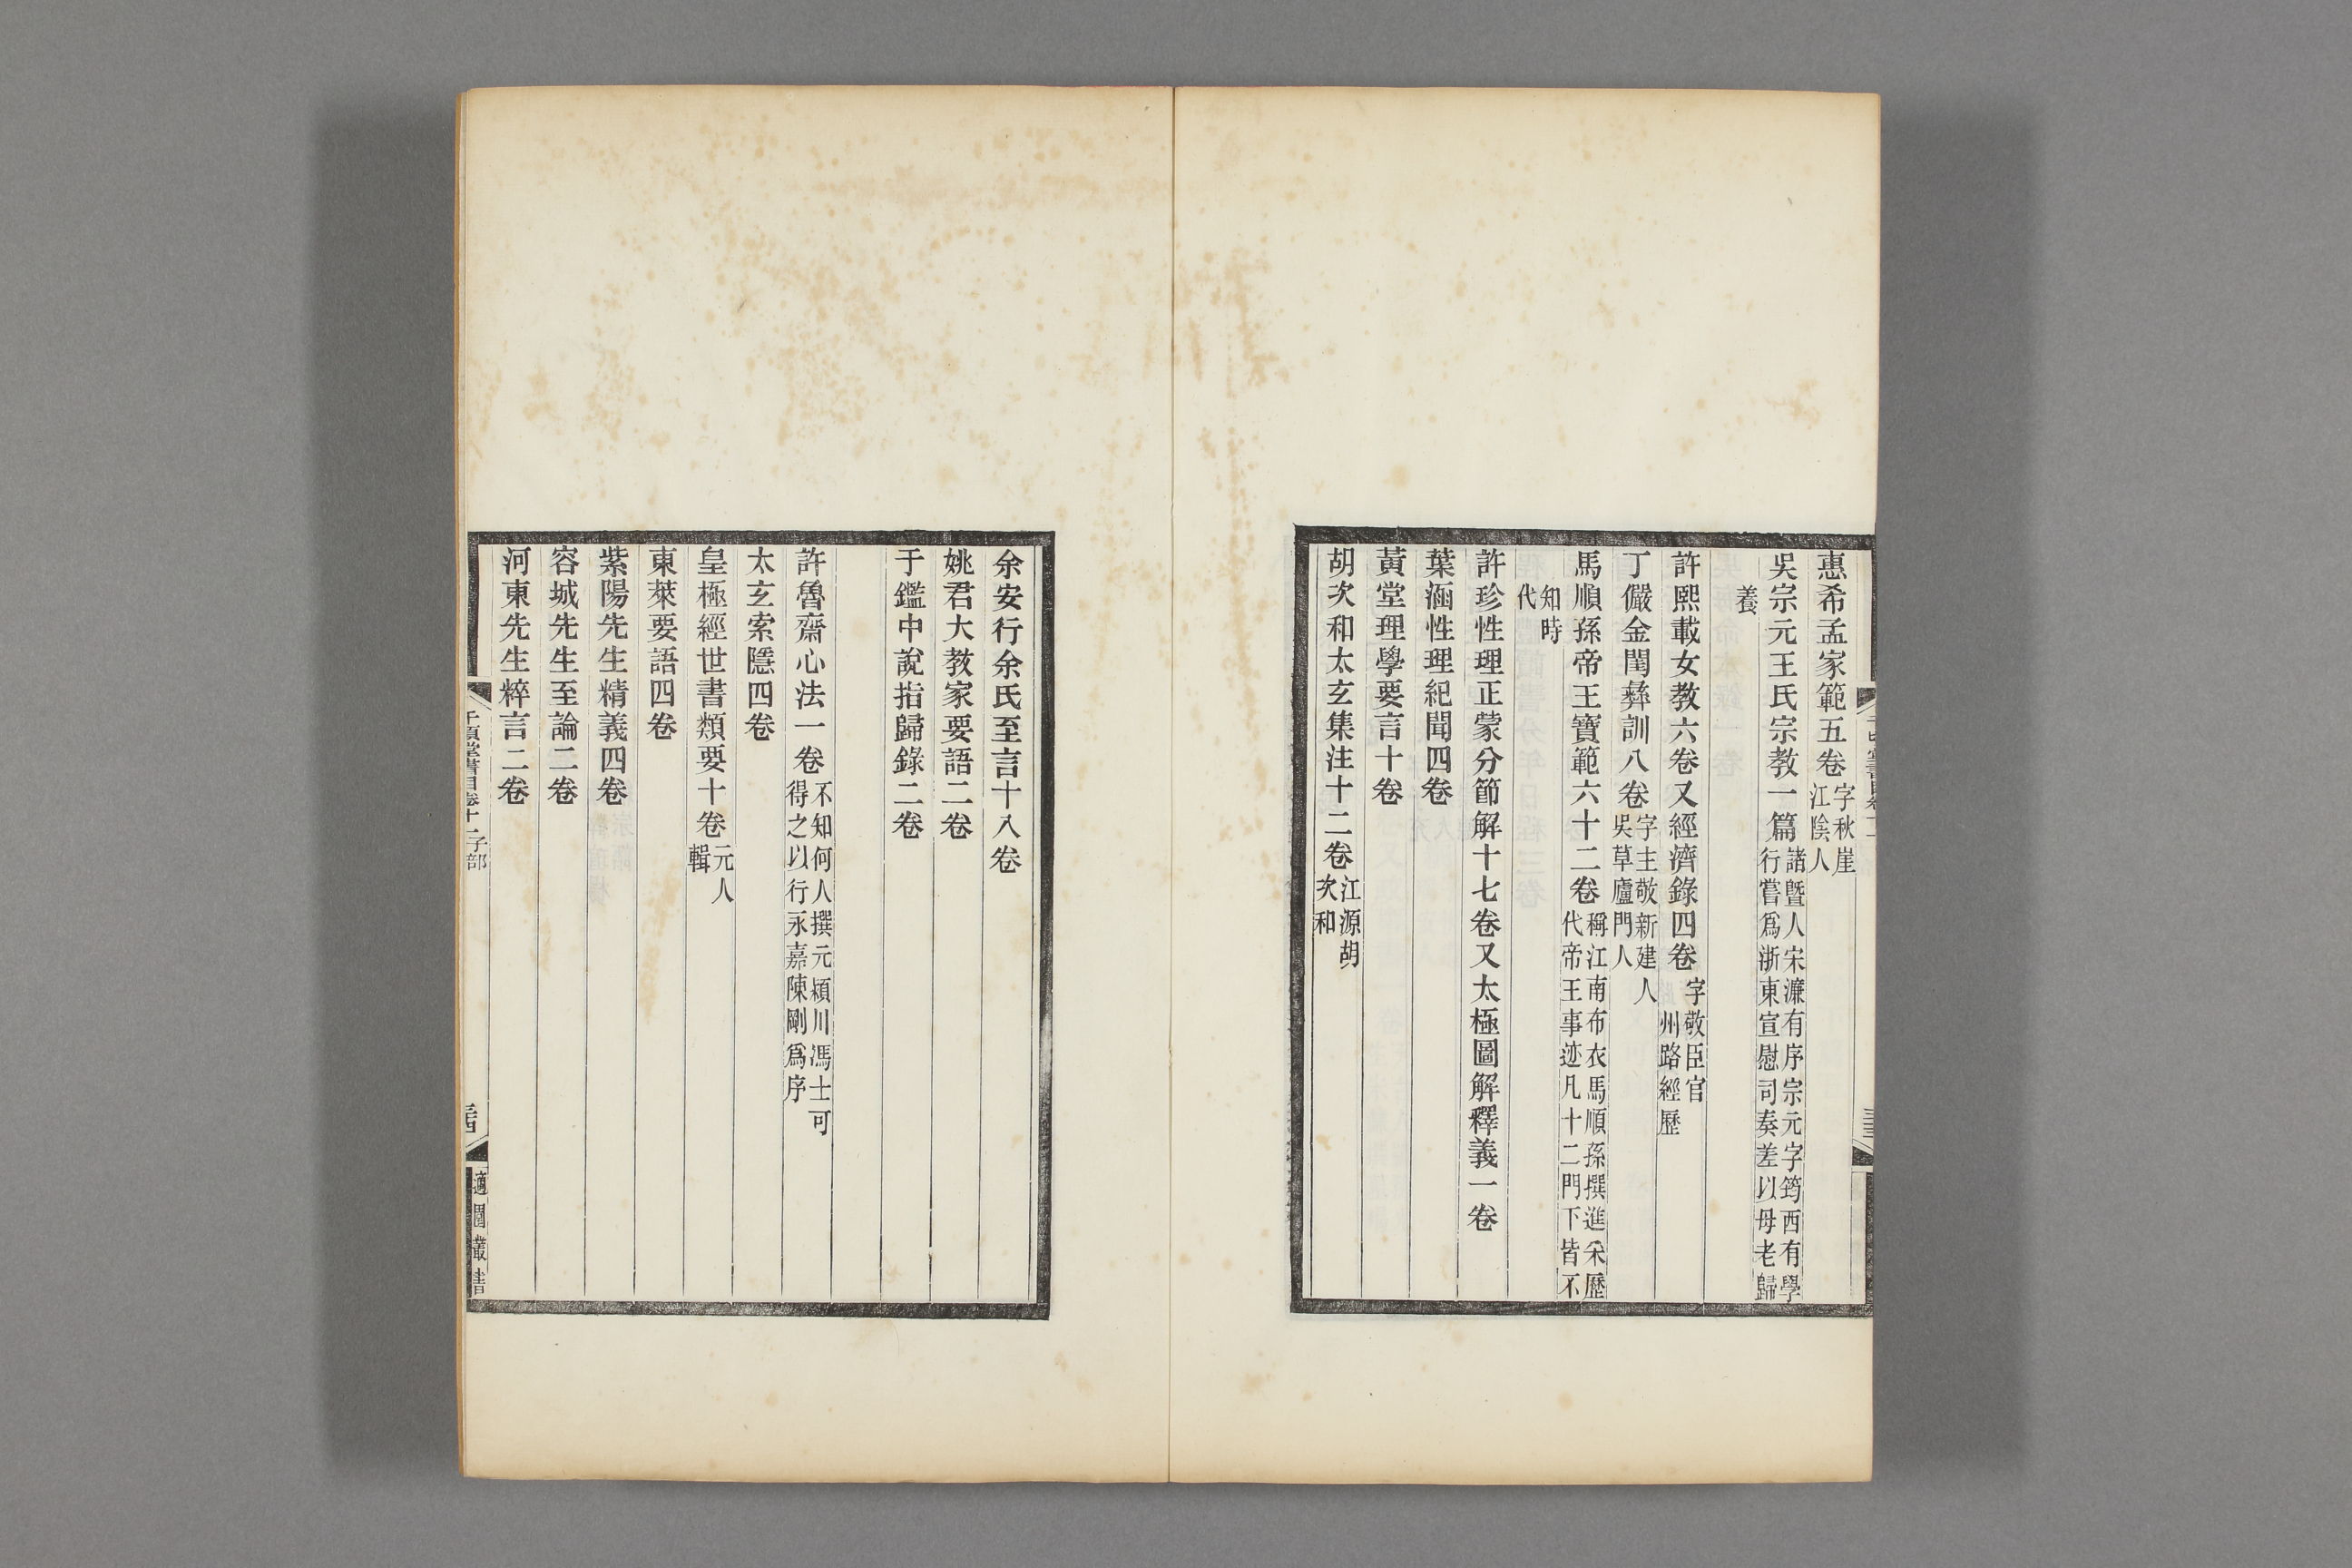 惠希孟家範五卷字秋崖江陰人
吳宗元王氏宗教一篇諸暨人宋濂有序宗元字筠西有學行嘗爲浙東宣慰司奏差以母老歸
養
許熙載女教六卷又經濟錄四卷字敬臣官州路經歷
丁儼金閨彝訓八卷字主敬新建人吳草廬門人
馬順孫帝王寶範六十二卷稱江南布衣馬順孫撰進采歷代帝王事迹凡十二門下皆不
知時代
許珍性理正蒙分節解十七卷又太極圖解釋義一卷
葉涵性理紀聞四卷
黃堂理學要言十卷
胡次和太玄集注十二卷江源胡次和
余安行余氏至言十八卷
姚君大教家要語二卷
于鑑中說指歸錄二卷
許魯齋心法一卷不知何人撰元潁川馮士可得之以行永嘉陳剛爲序
太玄索隱四卷
皇極經世書類要十卷元人輯
東萊要語四卷
紫陽先生精義四卷
容城先生至論二卷
河東先生粹言二卷
千頃堂書目卷十一子部
適園叢書